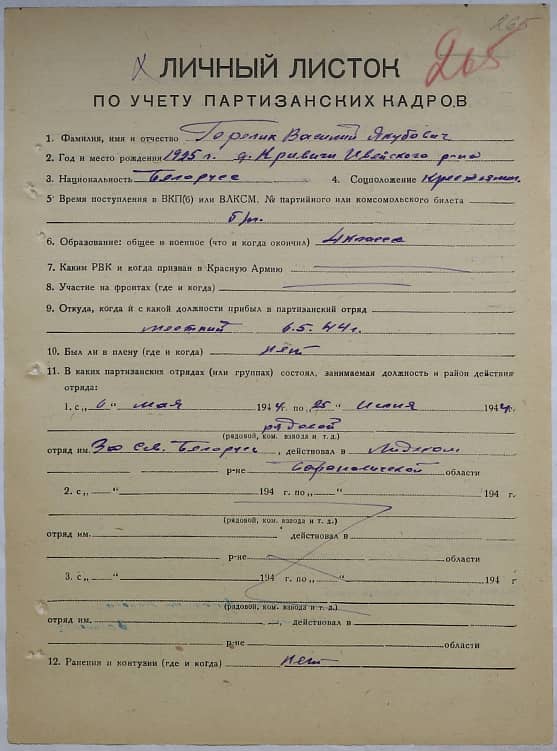 265
265
ЛИЧНЫЙ ЛИСТОК
ПО УЧЕТУ ПАРТИЗАНСКИХ КАДРОВ
1. Фамилия, имя и отчество Горелик Василий Якубович
2. Год и место рождения 1925 г. д. Кривичи Ивейского р-на
3. Национальность Белорусс 4. Соцположение Крестьянин
5. Время поступления в ВКП(б) или ВЛКСМ, № партийного или комсомольского билета
б/п.
6. Образование: общее и военное (что и когда окончил) 4 класса
7. Каким РВК и когда призван в Красную Армию
8. Участие на фронтах (где и когда)
9. Откуда, когда и с какой должности прибыл в партизанский отряд
местный 6.5.44г.
10. Был ли в плену (где и когда) нет
11. В каких партизанских отрядах (или группах) состоял, занимаемая должность и район действия
отряда:
1. с „6" мая 1944 г. по „25" июня 1944 г.
рядовой
(рядовой, ком. взвода и т. д.)
отряд им. За Сов. Белорусь, действовал в Лидском
р-не Барановичской области
2. с „ " 194 г. по „ " 194 г.
(рядовой, ком. взвода и т. д.)
отряд им. , действовал в
р-не области
3. с „ " 194 г. по „ " 194 г
(рядовой, ком. взвода и т. д.)
отряд им. , действовал в
р-не области
12. Ранения и контузии (где и когда) нет